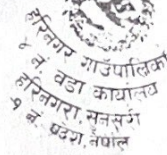 हरिनगर गाउँपालिका
४ नं. वडा कार्यालय
हरिनगरा, सुनसरी
१ नं. प्रदेश, नेपाल